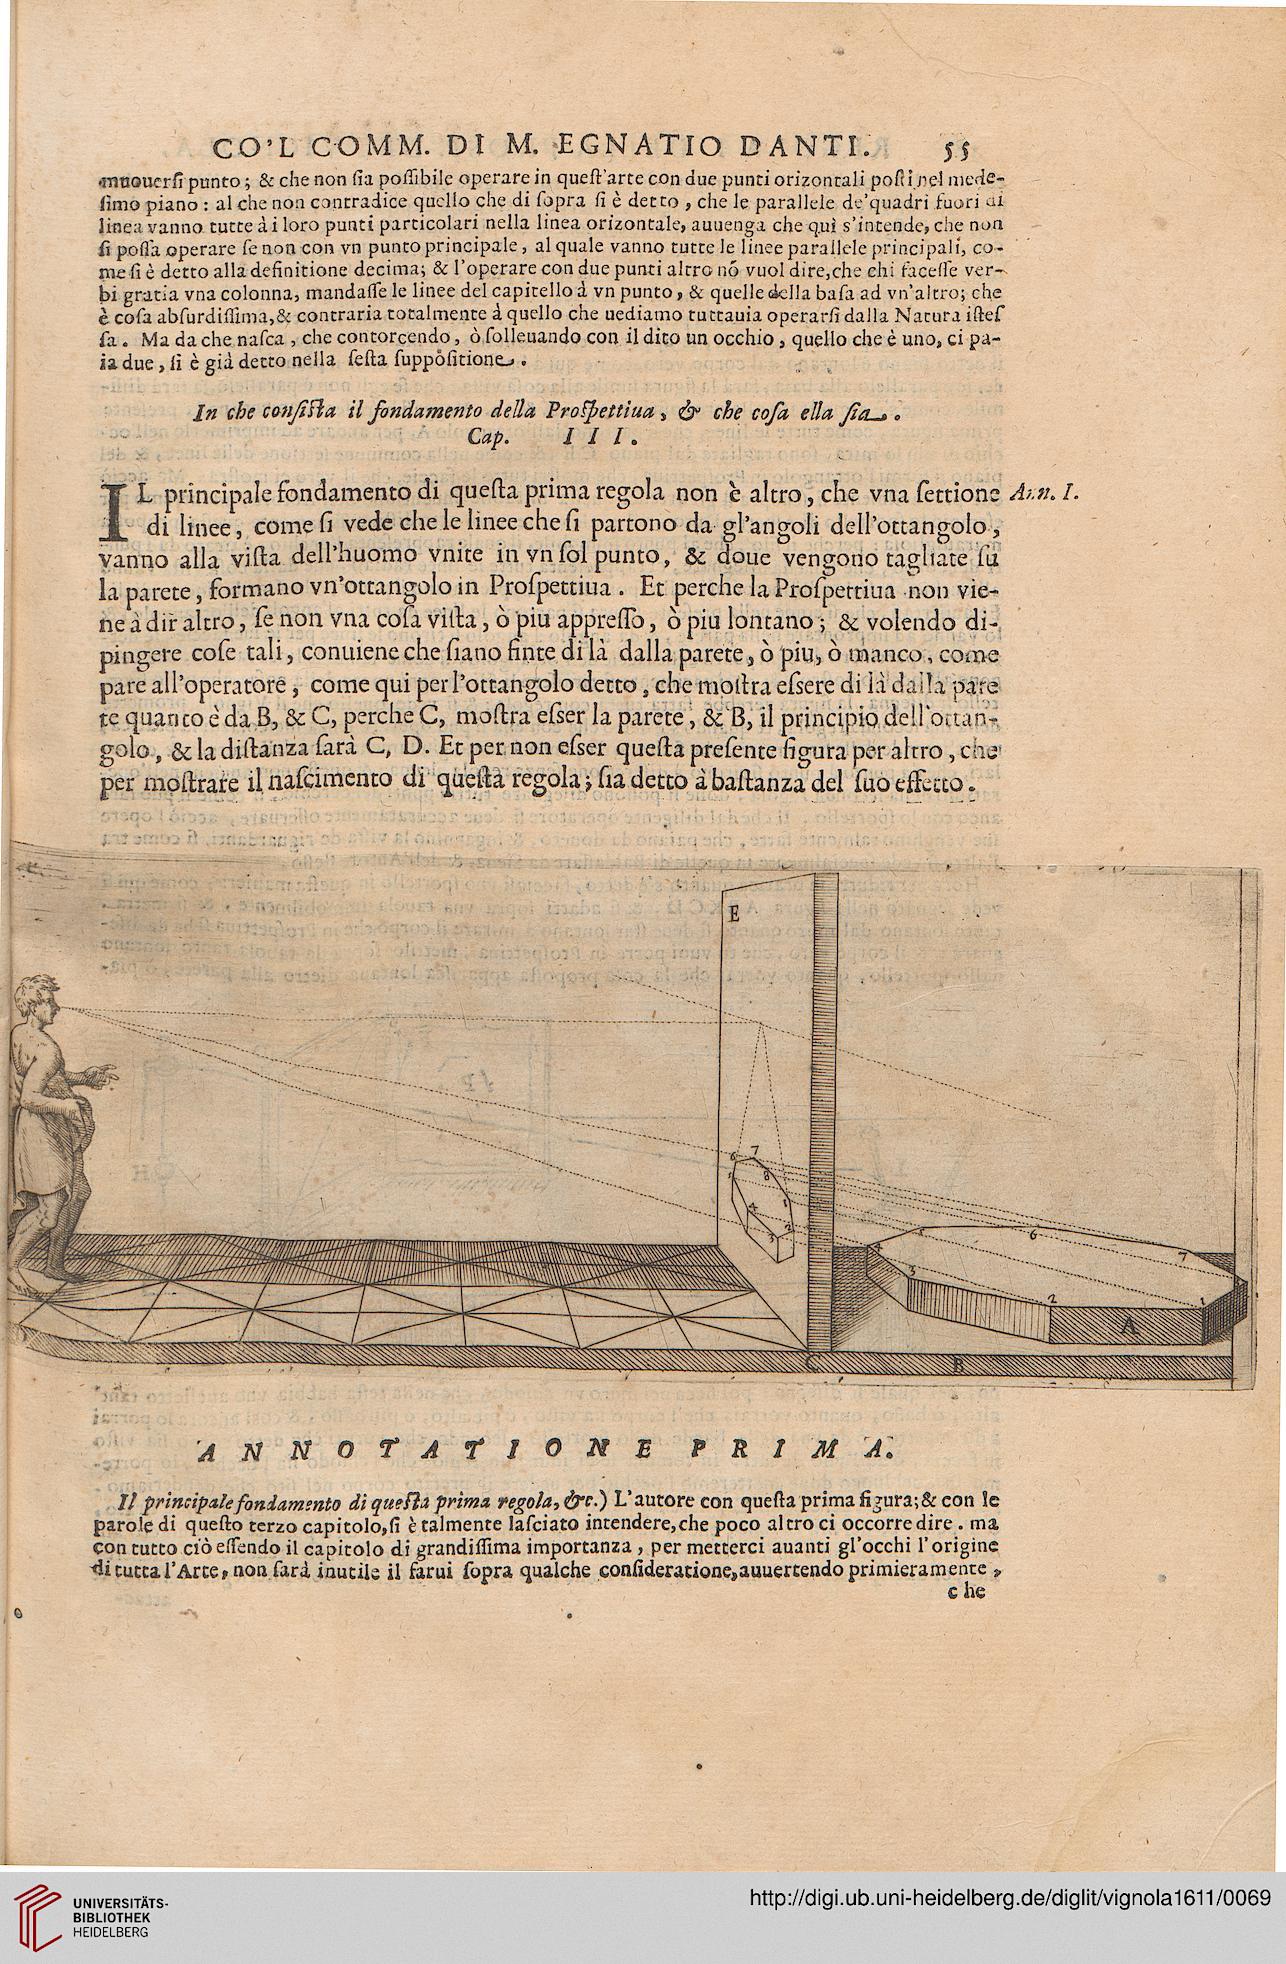 CO'L COMM. DI M. EGNATIO DANTI. 55
muouerſi punto; & che non ſia poſſibile operare in queſt'arte con due punti orizontali poſti nel mede-
ſimo piano: al che non contradice quello che di ſopra ſi è detto, che le parallele de'quadri fuori di
linea vanno tutte à i loro punti particolari nella linea orizontale, auuenga che quì s'intende, che non
ſi poſſa operare ſe non con vn punto principale, al quale vanno tutte le linee parallele principali, co-
me ſi è detto alla definitione decima; & l'operare con due punti altro nõ vuol dire, che chi faceſſe ver-
bi gratia vna colonna, mandaſſe le linee del capitello à vn punto, & quelle della baſa ad vn'altro; che
è coſa abſurdiſſima, & contraria totalmente à quello che uediamo tuttauia operarſi dalla Natura iſteſ
ſa. Ma da che naſca, che contorcendo, ò ſolleuando con il dito un occhio, quello che è uno, ci pa-
ia due, ſi è già detto nella ſeſta ſuppoſitione.
In che conſiſta il fondamento della Proſpettiua, & che coſa ella ſia.
Cap. III.
IL principale fondamento di queſta prima regola non è altro, che vna ſettione Ann. I.
di linee, come ſi vede che le linee che ſi partono da gl'angoli dell'ottangolo,
vanno alla viſta dell'huomo vnite in vn ſol punto, & doue vengono tagliate ſu
la parete, formano vn'ottangolo in Proſpettiua. Et perche la Proſpettiua non vie-
ne à dir altro, ſe non vna coſa viſta, ò piu appreſſo, ò piu lontano; & volendo di-
pingere coſe tali, conuiene che ſiano finte di là dalla parete, ò piu, ò manco, come
pare all'operatore, come qui per l'ottangolo detto, che moſtra eſsere di là dalla pare
te quanto è da B, & C, perche C, moſtra eſser la parete, & B, il principio dell'ottan-
golo, & la diſtanza ſarà C, D. Et per non eſser queſta preſente figura per altro, che
per moſtrare il naſcimento di queſta regola; ſia detto à baſtanza del ſuo effetto.
E
6 7
5 8
1
4 2
3
5 6 7
4
3 2 1
A
C B
ANNOTATIONE PRIMA.
Il principale fondamento di queſta prima regola, &c.) L'autore con queſta prima figura; & con le
parole di queſto terzo capitolo, ſi è talmente laſciato intendere, che poco altro ci occorre dire. ma
con tutto ciò eſſendo il capitolo di grandiſſima importanza, per metterci auanti gl'occhi l'origine
di tutta l'Arte, non ſarà inutile il farui ſopra qualche conſideratione, auuertendo primieramente,
che
UNIVERSITÄTS-
BIBLIOTHEK
HEIDELBERG
http://digi.ub.uni-heidelberg.de/diglit/vignola1611/0069